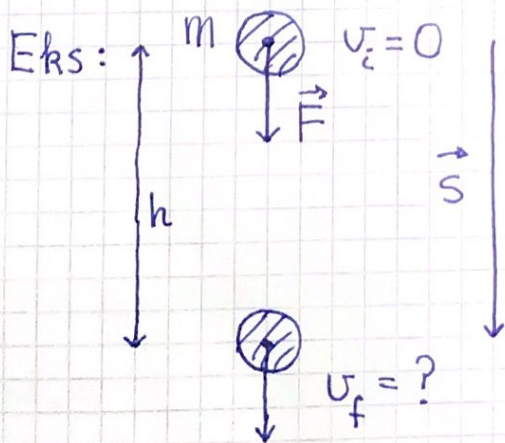 Eks:
m
v_i = 0
F⃗
h
s⃗
v_f = ?